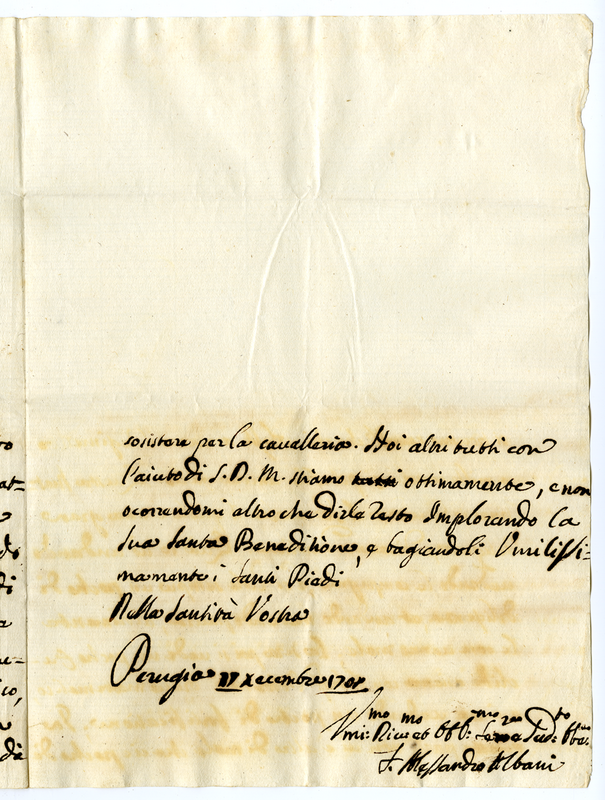 to
at-
e
do
di
a
ue-
ico,
a
di
sosistere per la cavalleria. Noi altri tutti con
l'aiuto di S. D. M. stiamo tutti ottimamente, e non
ocorrendomi altro che dirle resto Implorando la
Sua Santa Beneditione, e bagiandoli Umilissi-
mamente i Santi Piedi
Della Santità Vostra
Perugia Xecembre 1708
Alessandro Albani